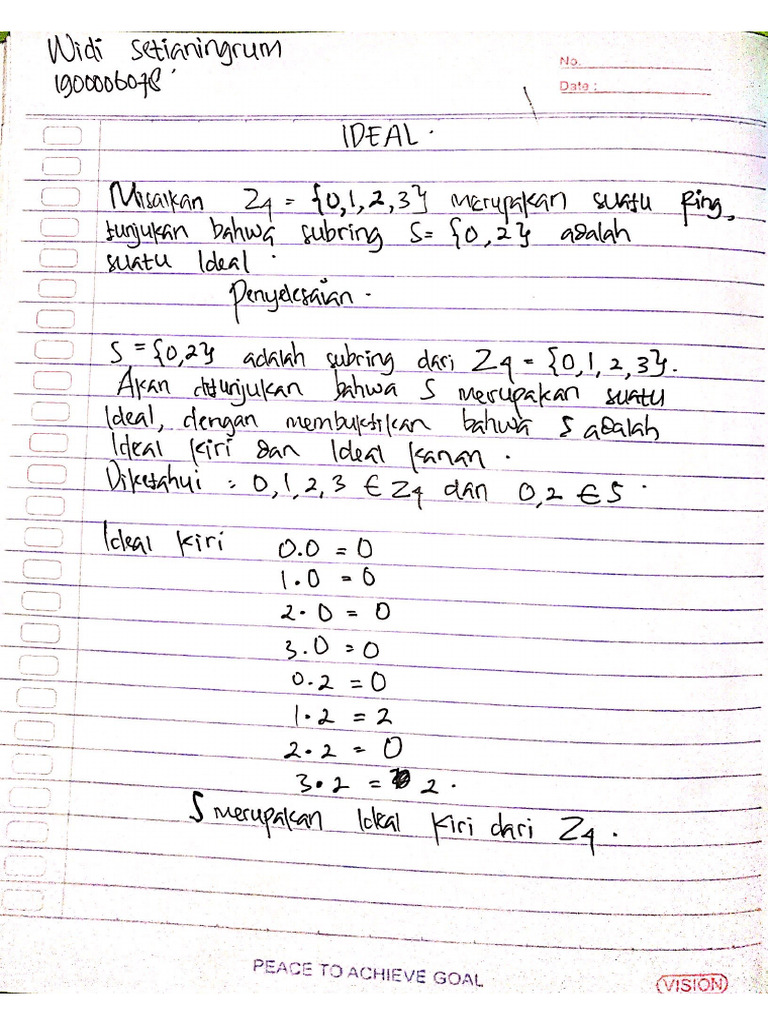 Widi Setianingrum
1900006078
No.
Date :
IDEAL.
Misalkan Z4 = {0,1,2,3} merupakan suatu Ring,
tunjukan bahwa subring S= {0,2} adalah
suatu Ideal.
Penyelesaian.
S = {0,2} adalah subring dari Z4 = {0,1,2,3}.
Akan ditunjukan bahwa S merupakan suatu
Ideal, dengan membuktikan bahwa S adalah
Ideal kiri dan Ideal kanan.
Diketahui = 0,1,2,3 ∈ Z4 dan 0,2 ∈ S.
Ideal kiri 0.0 = 0
1.0 = 0
2.0 = 0
3.0 = 0
0.2 = 0
1.2 = 2
2.2 = 0
3.2 = 2.
S merupakan Ideal kiri dari Z4.
PEACE TO ACHIEVE GOAL
VISION